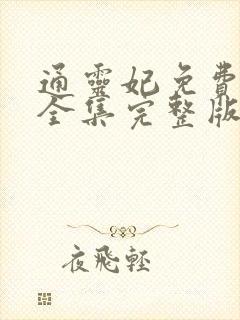 通靈妃免費
全集完整版
夜飛輕